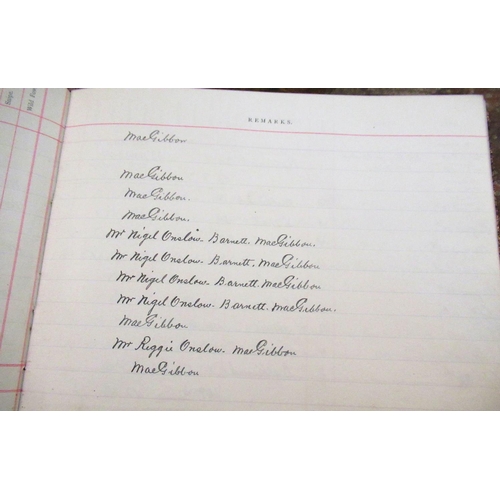 Snipe.
Wild Fowl
REMARKS.
MacGibbon
MacGibbon
MacGibbon.
MacGibbon.
Mr Nigel Onslow. Barnett. MacGibbon.
Mr Nigel Onslow. Barnett. MacGibbon
Mr Nigel Onslow. Barnett. MacGibbon
Mr Nigel Onslow. Barnett. MacGibbon.
MacGibbon
Mr Riggie Onslow. MacGibbon
MacGibbon